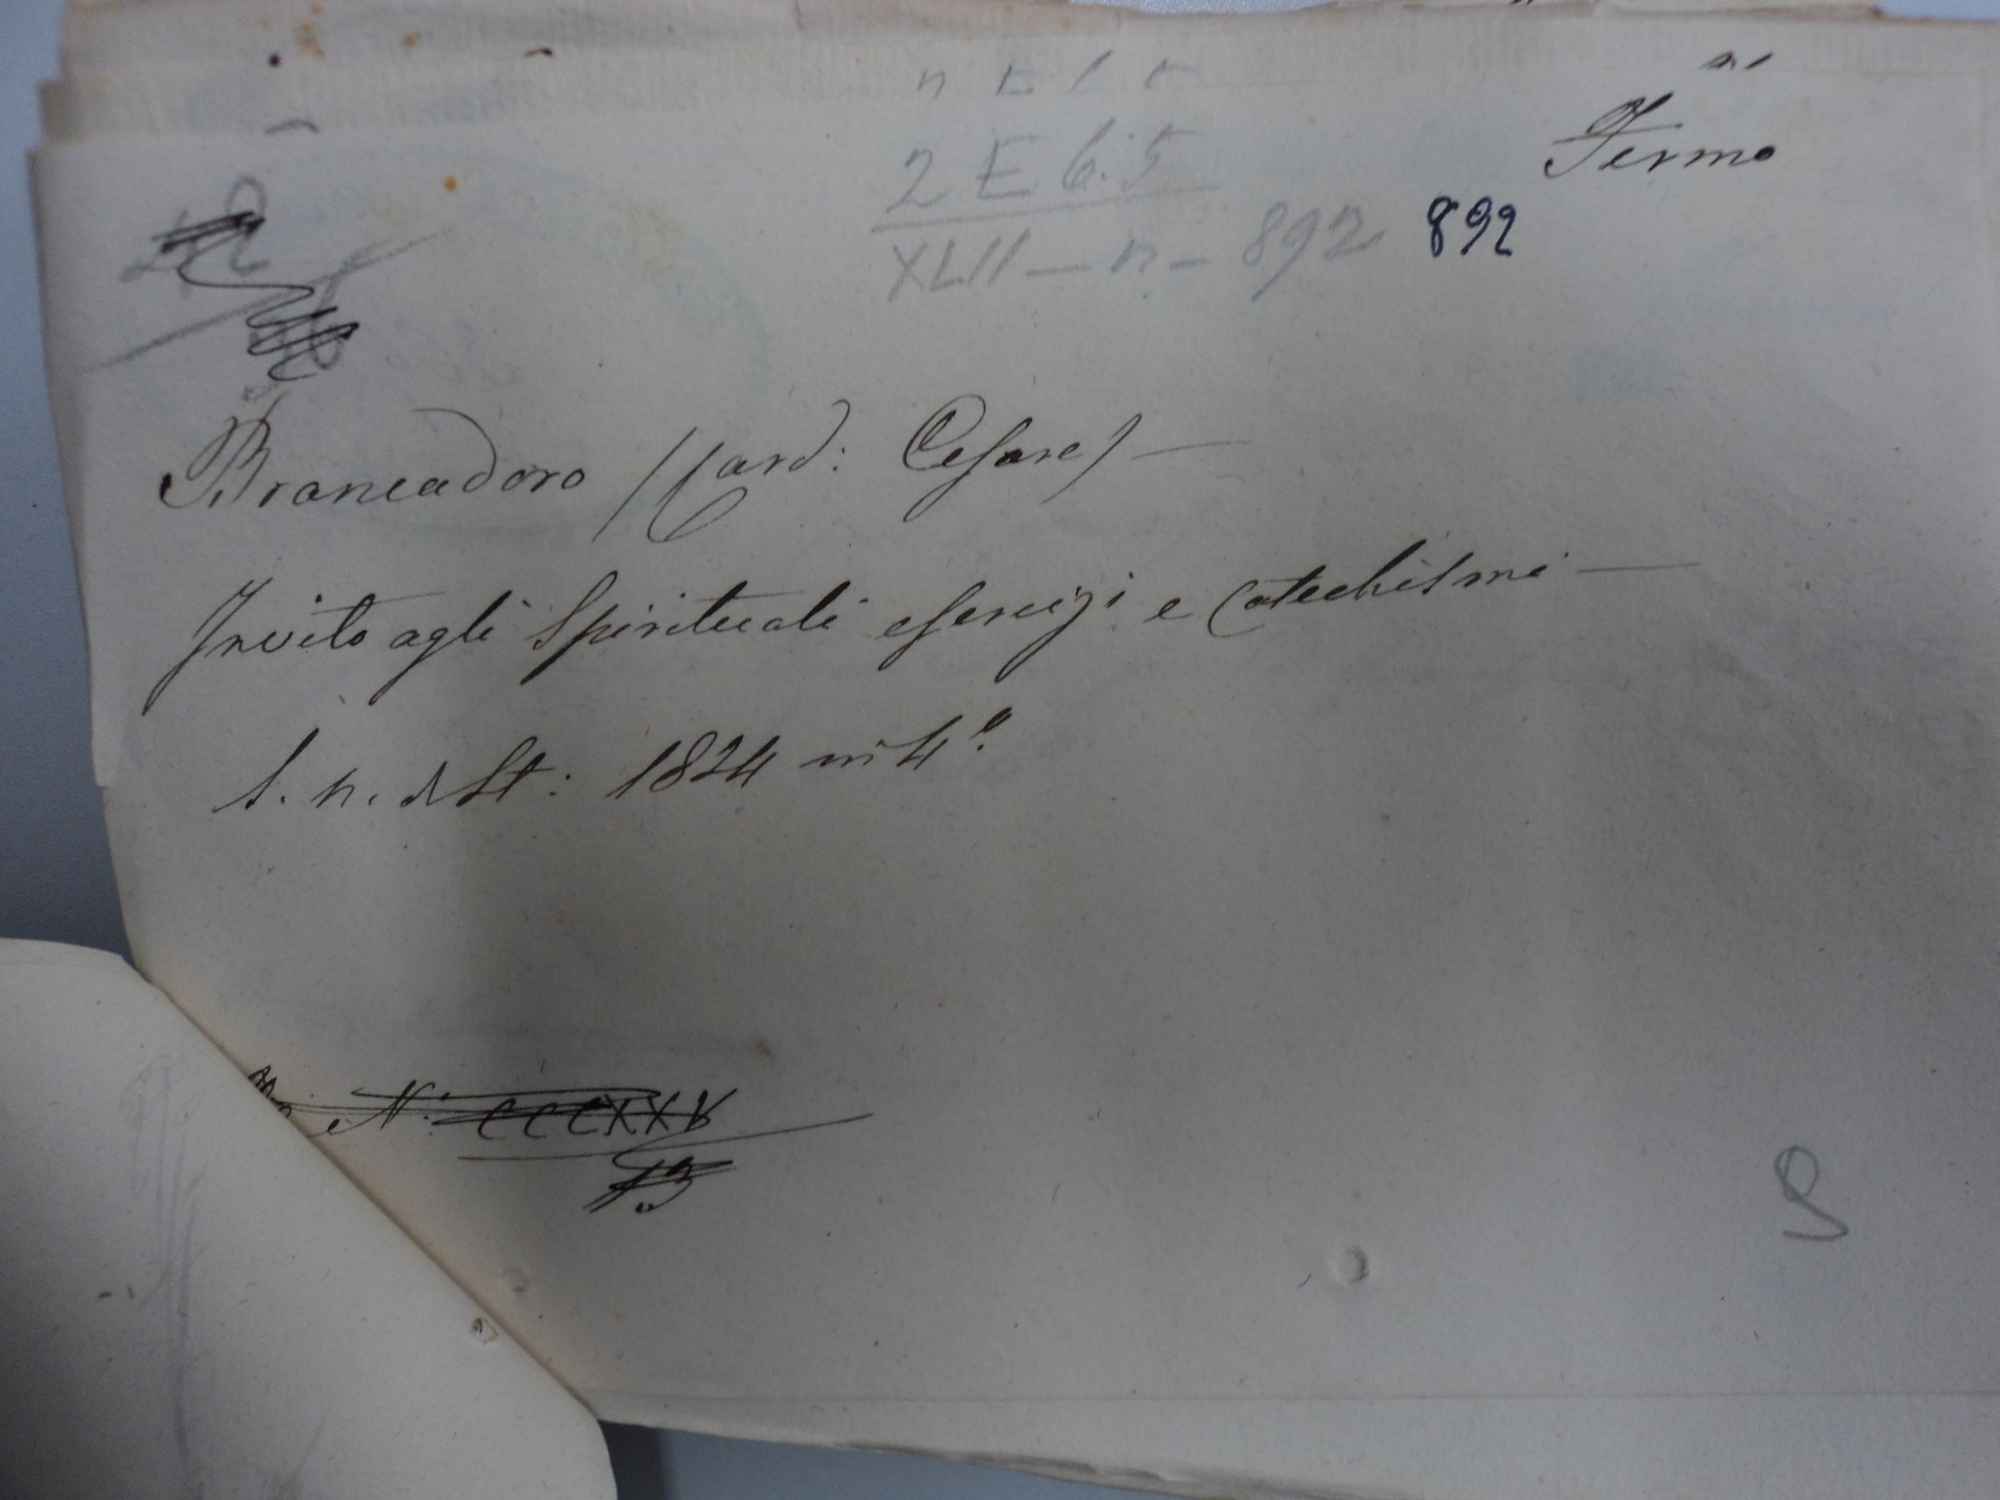 Fermo
2 E 6.5
XLII — n — 892 892
Brancadoro (Card: Cesare) —
Invito agli Spirituali esercizi e Catechismi —
S. n. di St: 1824 in 4.º
N: CCCXXV
13
S